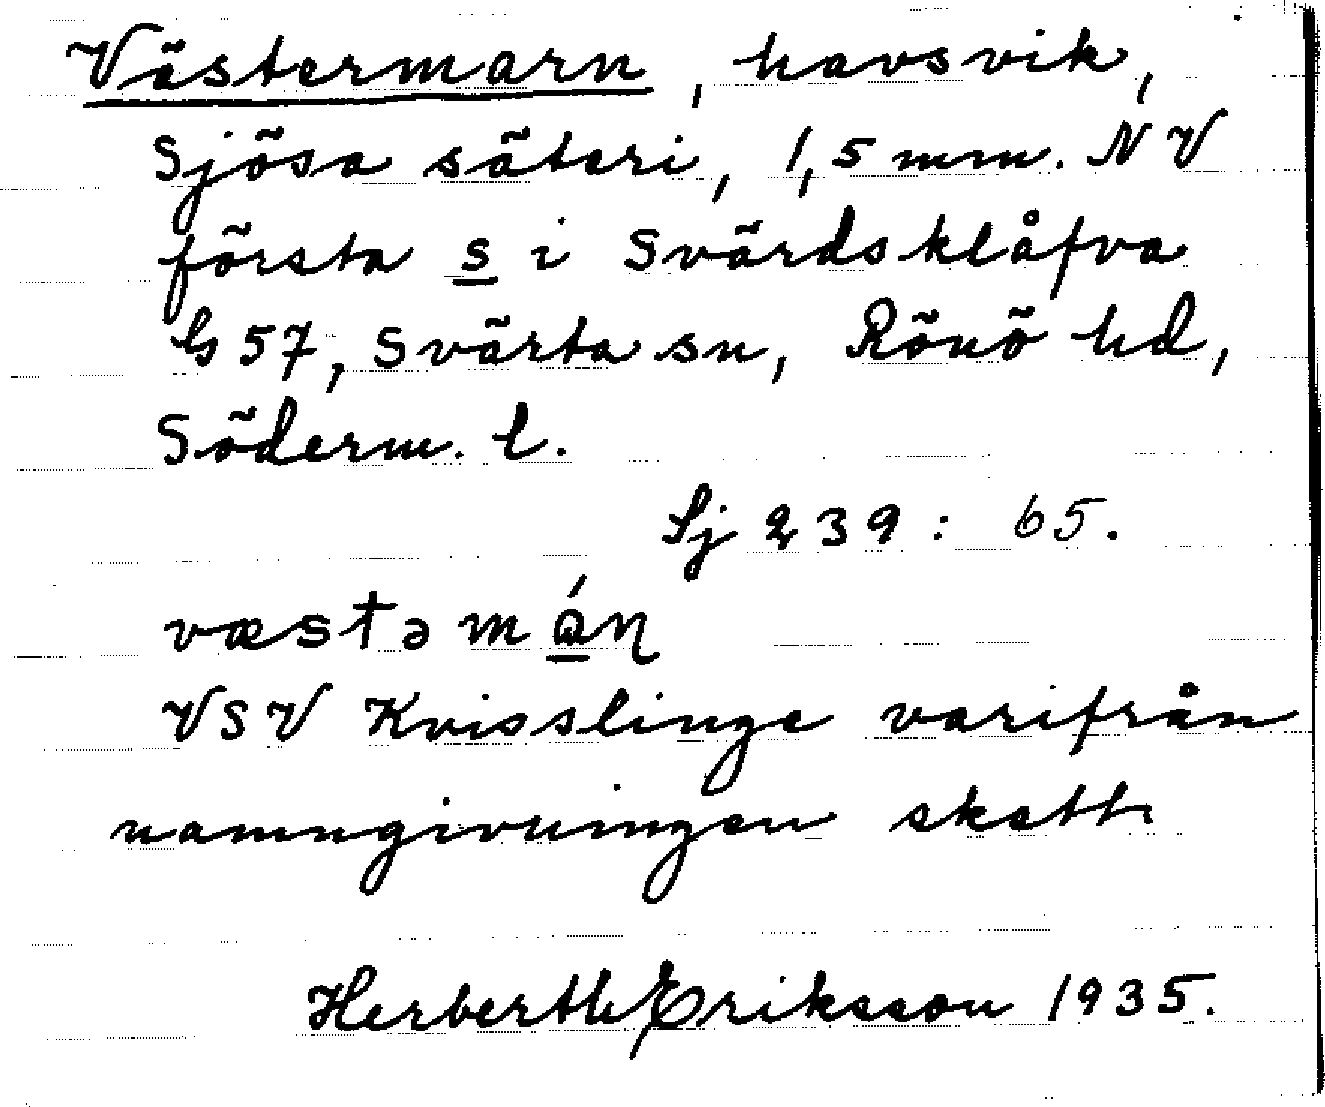 Västermarn, havsvik,
Sjösa säteri, 1,5 mm. NV
första s i Svärdsklåfva
G 57, Svärta sn, Rönö hd,
Söderm. l.
Sj 239: 65.
væstəmán
VSV Kvisslinge varifrån
namngivningen skett
Herberth Eriksson 1935.